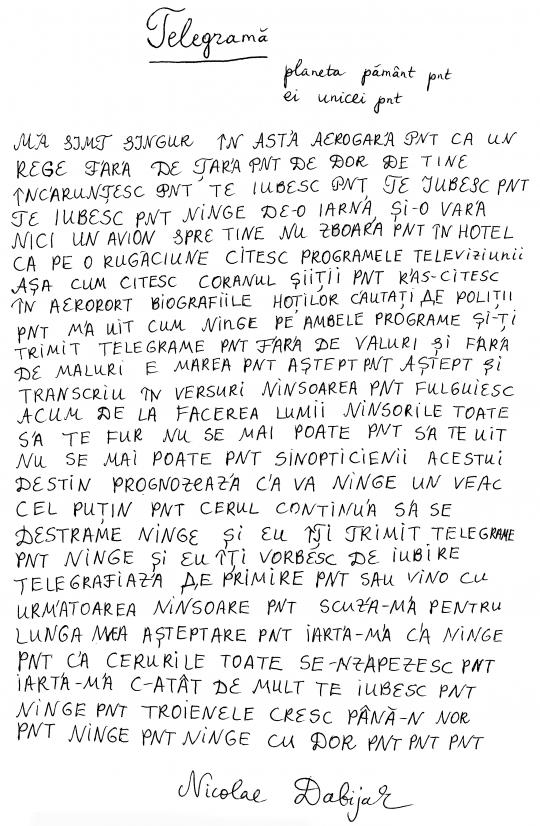 Telegramă
planeta pământ pnt
ei unicei pnt
MĂ SIMT SINGUR ÎN ASTĂ AEROGARĂ PNT CA UN
REGE FĂRĂ DE ȚARĂ PNT DE DOR DE TINE
ÎNCĂRUNȚESC PNT TE IUBESC PNT TE IUBESC PNT
TE IUBESC PNT NINGE DE-O IARNĂ ȘI-O VARĂ
NICI UN AVION SPRE TINE NU ZBOARĂ PNT ÎN HOTEL
CA PE O RUGĂCIUNE CITESC PROGRAMELE TELEVIZIUNII
AȘA CUM CITESC CORANUL ȘIIȚII PNT RĂS-CITESC
ÎN AERORORT BIOGRAFIILE HOȚILOR CĂUTAȚI DE POLIȚII
PNT MĂ UIT CUM NINGE PE AMBELE PROGRAME ȘI-ȚI
TRIMIT TELEGRAME PNT FĂRĂ DE VALURI ȘI FĂRĂ
DE MALURI E MAREA PNT AȘTEPT PNT AȘTEPT ȘI
TRANSCRIU ÎN VERSURI NINSOAREA PNT FULGUIESC
ACUM DE LA FACEREA LUMII NINSORILE TOATE
SĂ TE FUR NU SE MAI POATE PNT SĂ TE UIT
NU SE MAI POATE PNT SINOPTICIENII ACESTUI
DESTIN PROGNOZEAZĂ CĂ VA NINGE UN VEAC
CEL PUȚIN PNT CERUL CONTINUĂ SĂ SE
DESTRAME NINGE ȘI EU ÎȚI TRIMIT TELEGRAME
PNT NINGE ȘI EU ÎȚI VORBESC DE IUBIRE
TELEGRAFIAZĂ DE PRIMIRE PNT SAU VINO CU
URMĂTOAREA NINSOARE PNT SCUZĂ-MĂ PENTRU
LUNGA MEA AȘTEPTARE PNT IARTĂ-MĂ CĂ NINGE
PNT CĂ CERURILE TOATE SE-NZĂPEZESC PNT
IARTĂ-MĂ C-ATÂT DE MULT TE IUBESC PNT
NINGE PNT TROIENELE CRESC PÂNĂ-N NOR
PNT NINGE PNT NINGE CU DOR PNT PNT PNT
Nicolae Dabija